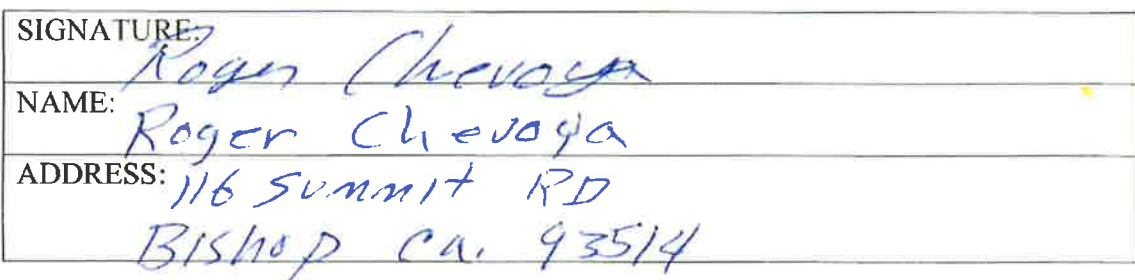 SIGNATURE: Roger Chevoya
NAME: Roger Chevoya
ADDRESS: 116 Summit RD
Bishop Ca. 93514